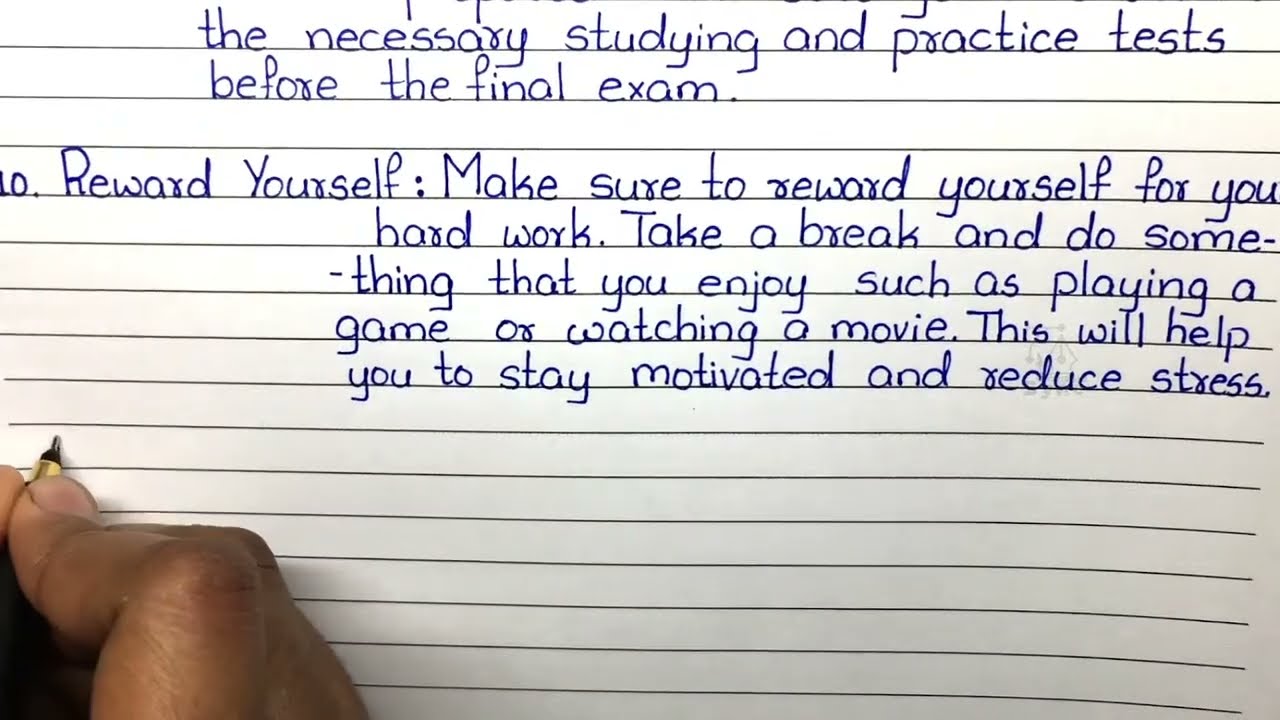 the necessary studying and practice tests
before the final exam.
10. Reward Yourself: Make sure to reward yourself for you
hard work. Take a break and do some-
-thing that you enjoy such as playing a
game or watching a movie. This will help
you to stay motivated and reduce stress.